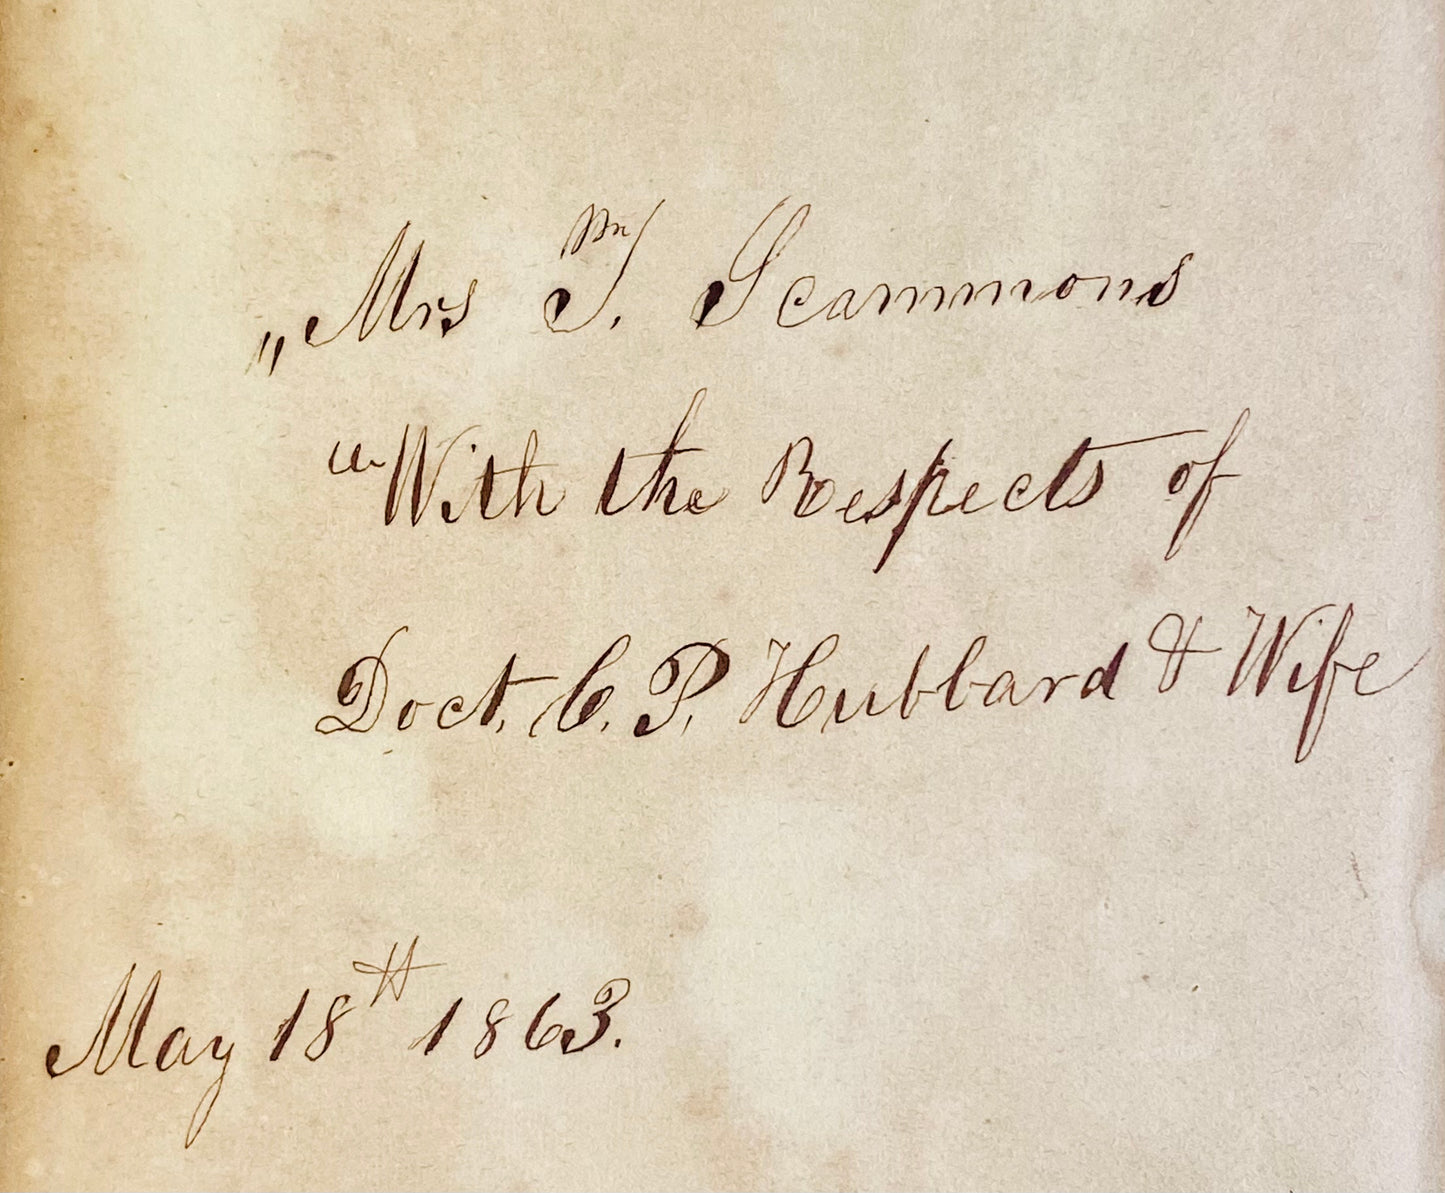 „Mrs T. Scammons
“With the Respects of
Doct. C. P. Hubbard & Wife
May 18th 1863.